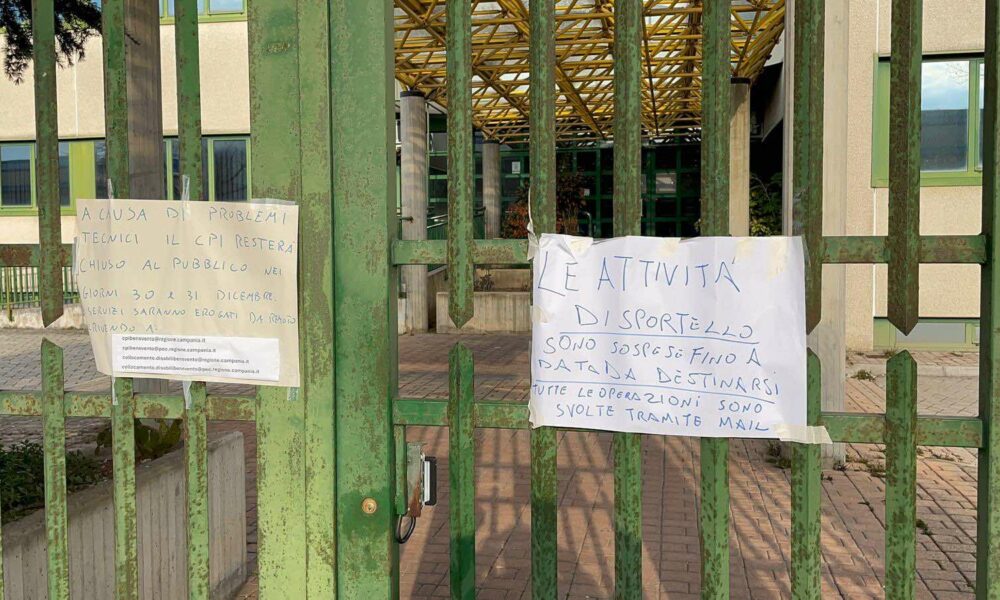 A CAUSA DI PROBLEMI
TECNICI IL CPI RESTERÀ
CHIUSO AL PUBBLICO NEI
GIORNI 30 E 31 DICEMBRE.
SERVIZI SARANNO EROGATI DA REMOTO
A:
cpibenevento@regione.campania.it
cpibenevento@pec.regione.campania.it
collocamento.disabilibenevento@regione.campania.it
collocamento.disabilibenevento@pec.regione.campania.it
LE ATTIVITÀ
DI SPORTELLO
SONO SOSPESE FINO A
DATA DA DESTINARSI
TUTTE LE OPERAZIONI SONO
SVOLTE TRAMITE MAIL